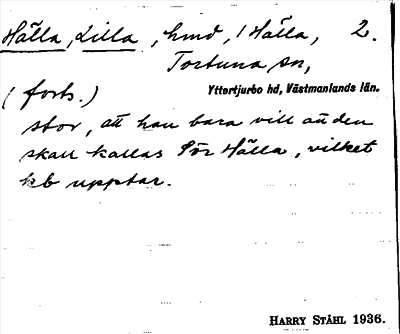 Hälla, Lilla, hmd, / Hälla, 2.
Tortuna sn,
(forts.) Yttertjurbo hd, Västmanlands län.
stor, att han bara vill att den
skall kallas Sör Hälla, vilket
kb upptar.
HARRY STÅHL 1936.